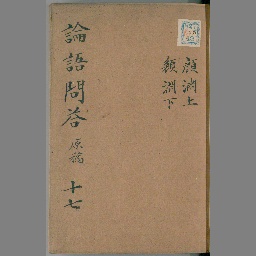 顔淵上
顔淵下
論語問答 原稿 十七